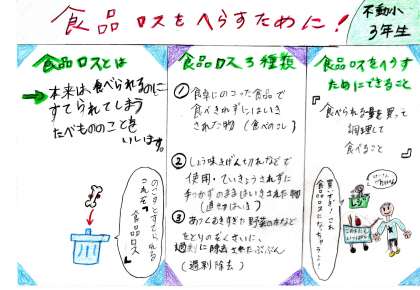 食品ロスをへらすために!
不動小
3年生
食品ロスとは
本来は、食べられるのに
すてられてしまう
たべもののことを
いいます。
のこすとすてられる
これぞ
食品ロス
食品ロス3種類
① 食卓にのった食品で
食べきれずにはいき
された物(食べのこし)
② しょう味きげん切れなどで
使用・ていきょうされずに
手つかずのままはいきされた物
③ あつくむきすぎた野菜の皮など
過剰に除去されたぶぶん
(過剰除去)
食品ロスをへらす
ためにできること
『食べられる量を買って
調理して
食べること』
買いすぎ!これ
食品ロスになっちゃうよ!